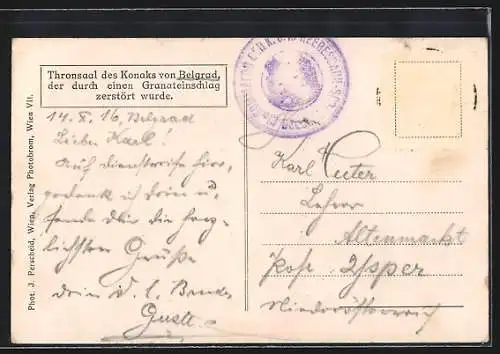 Thronsaal des Konaks von Belgrad,
der durch einen Granateinschlag
zerstört wurde.
14. X. 16, Belgrad
Lieber Karl!
Auf Dienstreise hier,
gedenk ich Dein u.
sende Dir die herz-
lichsten Grüße
Dein
Gustl.
Karl
Lehrer
Altenmarkt
Post Ysper
Niederösterreich
Phot. J. Perscheid, Wien, Verlag Photobrom, Wien VII.